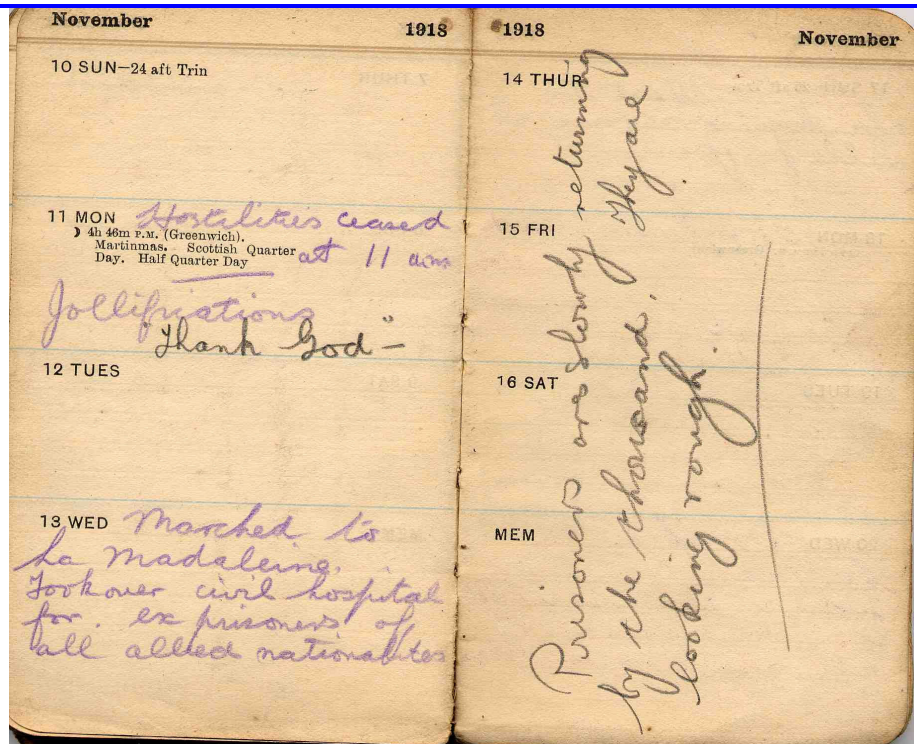 November 1918
10 SUN—24 aft Trin
11 MON Hostilities ceased
☽ 4h 46m P.M. (Greenwich).
Martinmas. Scottish Quarter
Day. Half Quarter Day
at 11 am
Jollifications
"Thank God" —
12 TUES
13 WED Marched to
La Madaleine.
Took over civil hospital
for ex prisoners of
all allied nationalites
1918 November
14 THUR
15 FRI
16 SAT
MEM
Prisoners are slowly returning
by the thousand. They are
looking rough.